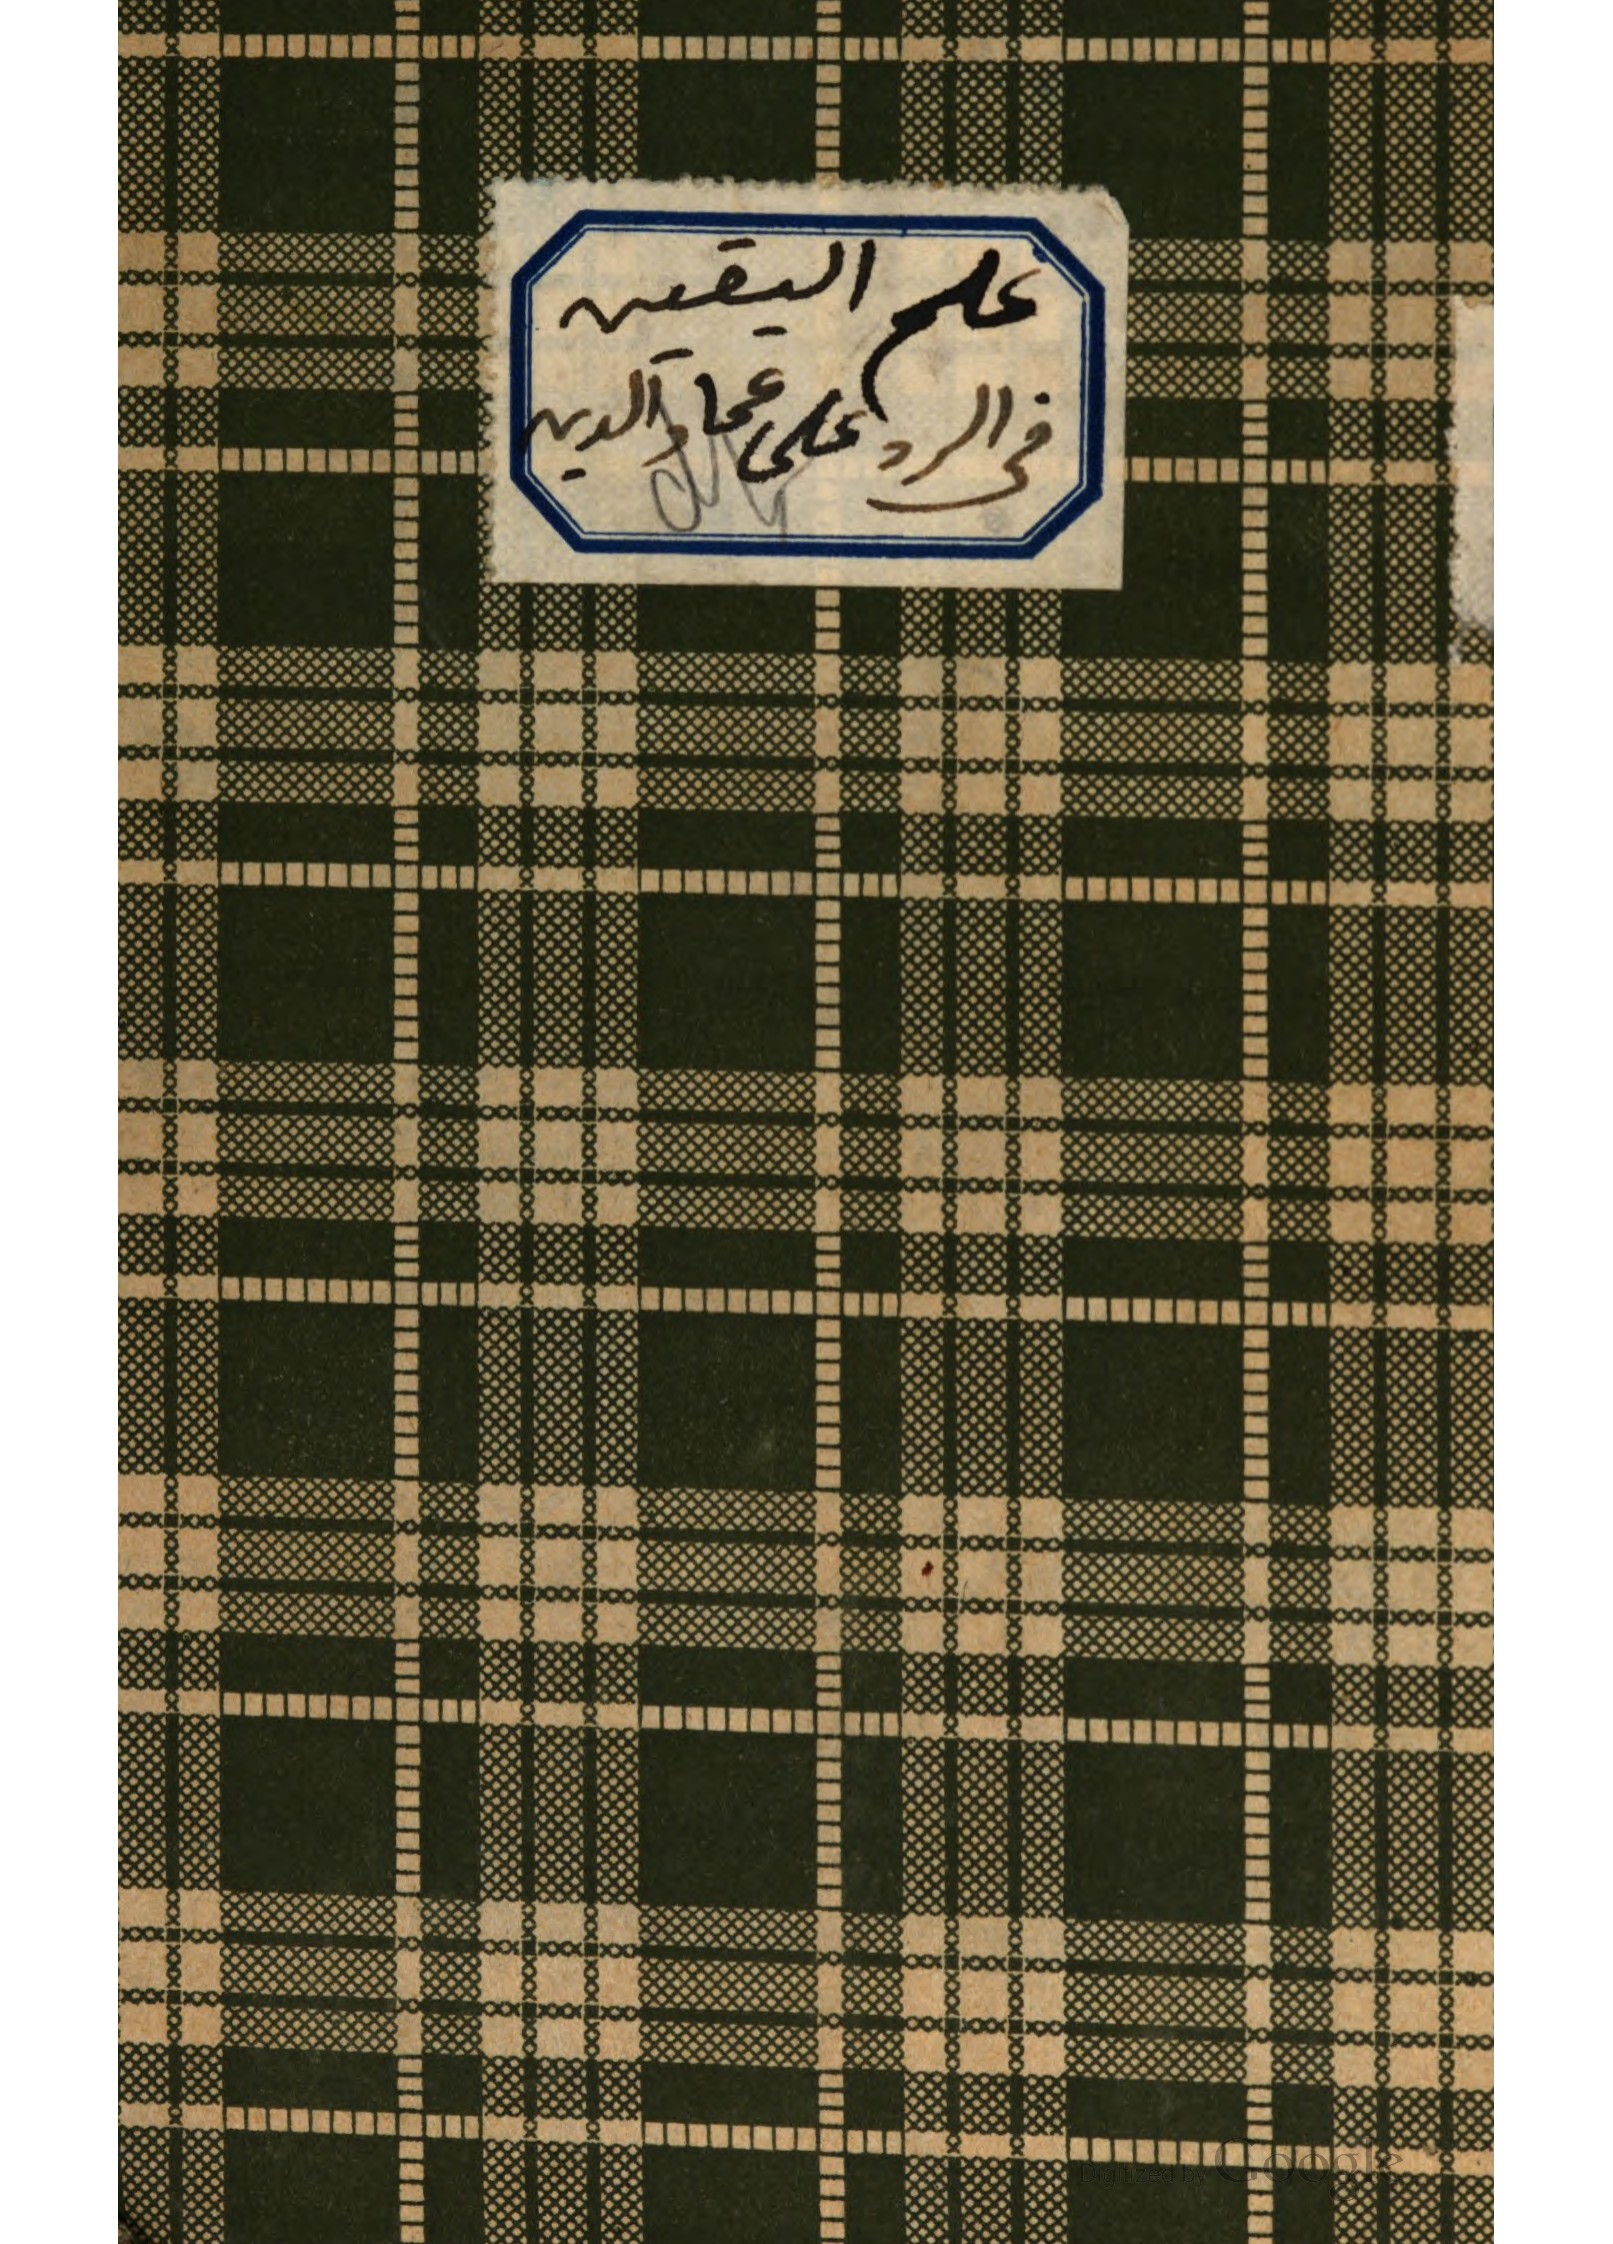 علم اليقين
في الرد على عماد الدين
Digitized by Google